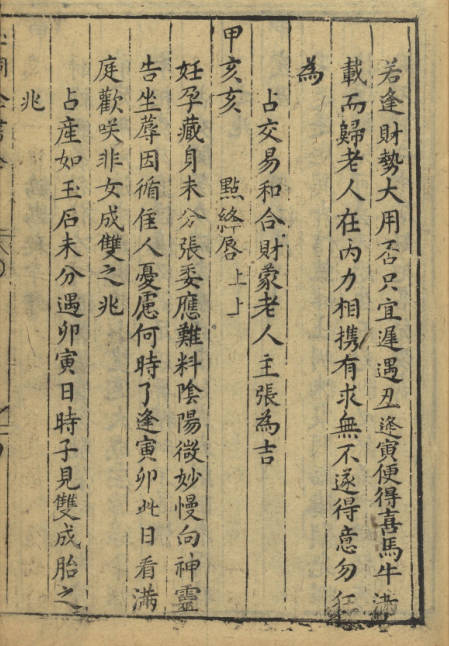 若逢財勢大用否只宜遲遇丑逢寅便得喜馬牛滿
載而歸老人在內力相携有求無不遂得意勿狂
為
占交易和合財蒙老人主張為吉
甲亥亥 點絳唇 上上
妊孕藏身未分張委應難料陰陽微妙慢向神靈
告坐蓐因循隹人憂慮何時了逢寅卯此日看滿
庭歡咲非女成雙之兆
占産如玉石未分遇卯寅日時子見雙成胎之
兆